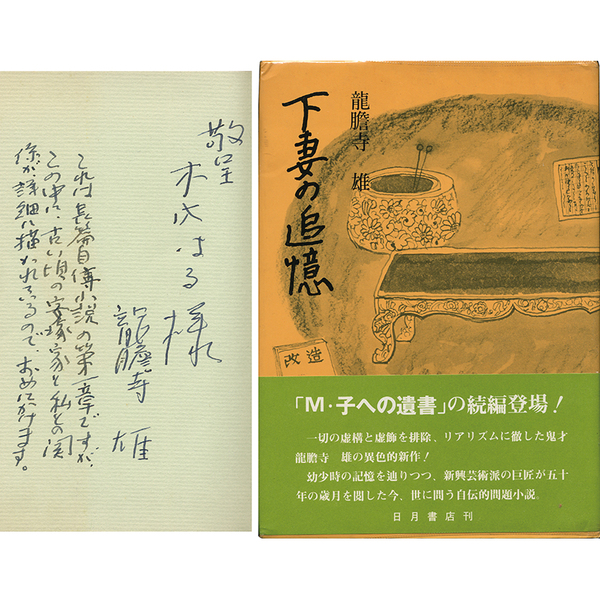 敬呈
はる様
龍膽寺 雄
これは長篇自傳小説の第一章ですが、
この中に、古い頃の家と私との関
係が詳細に描かれているので、おめにかけます。
龍膽寺 雄
下妻の追憶
改造
「M・子への遺書」の続編登場！
一切の虚構と虚飾を排除、リアリズムに徹した鬼才
龍膽寺 雄の異色的新作！
幼少時の記憶を辿りつつ、新興芸術派の巨匠が五十
年の歳月を閲した今、世に問う自伝的問題小説。
日月書店刊